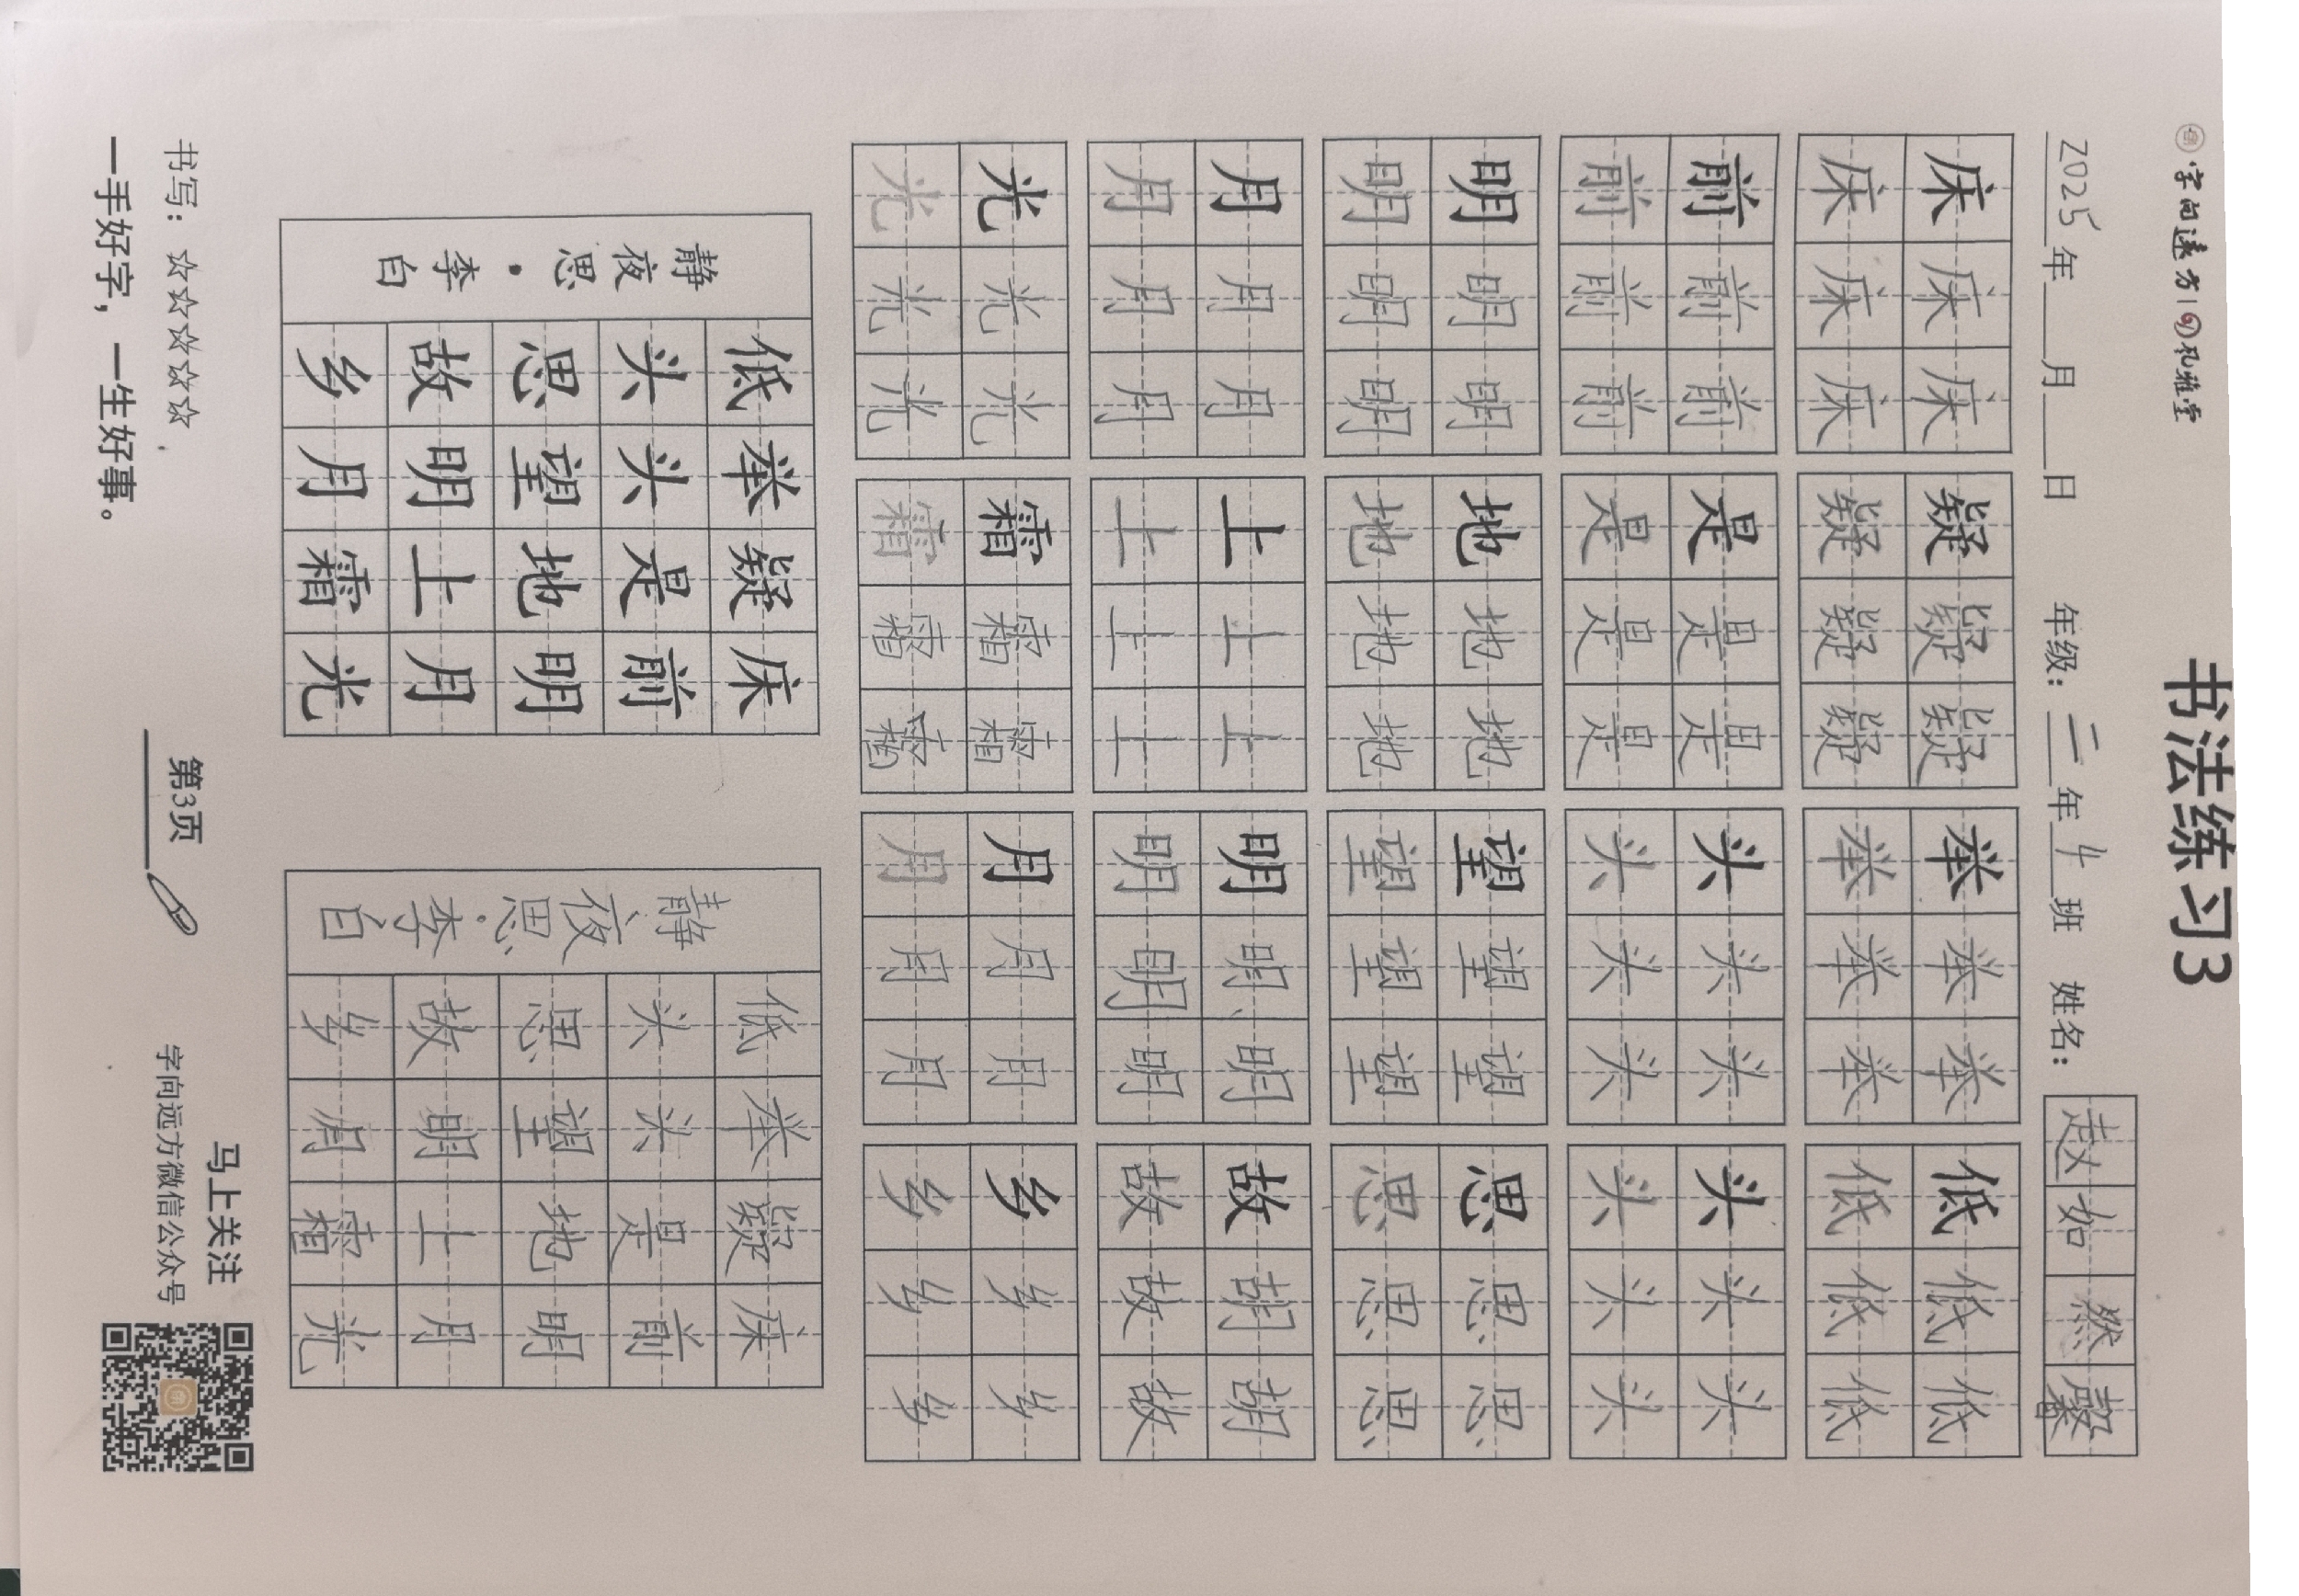 字向遠方|孔雅堂
书法练习3
2025年__月__日 年级：二年4班 姓名：赵如然
床床床 疑疑疑 举举举 低低低
床床床 疑疑疑 举举举 低低低
前前前 是是是 头头头 头头头
前前前 是是是 头头头 头头头
明明明 地地地 望望望 思思思
明明明 地地地 望望望 思思思
月月月 上上上 明明明 故胡胡
月月月 上上上 明明明 故故故
光光光 霜霜霜 月月月 乡乡乡
光光光 霜霜霜 月月月 乡乡乡
床前明月光
疑是地上霜
举头望明月
低头思故乡
静夜思·李白
床前明月光
疑是地上霜
举头望明月
低头思故乡
静夜思·李白
马上关注
字向远方微信公众号
第3页
书写：☆☆☆☆☆
一手好字，一生好事。